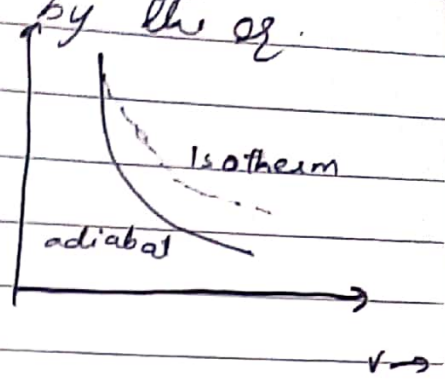 by the eq.
Isotherm
adiabat
V →